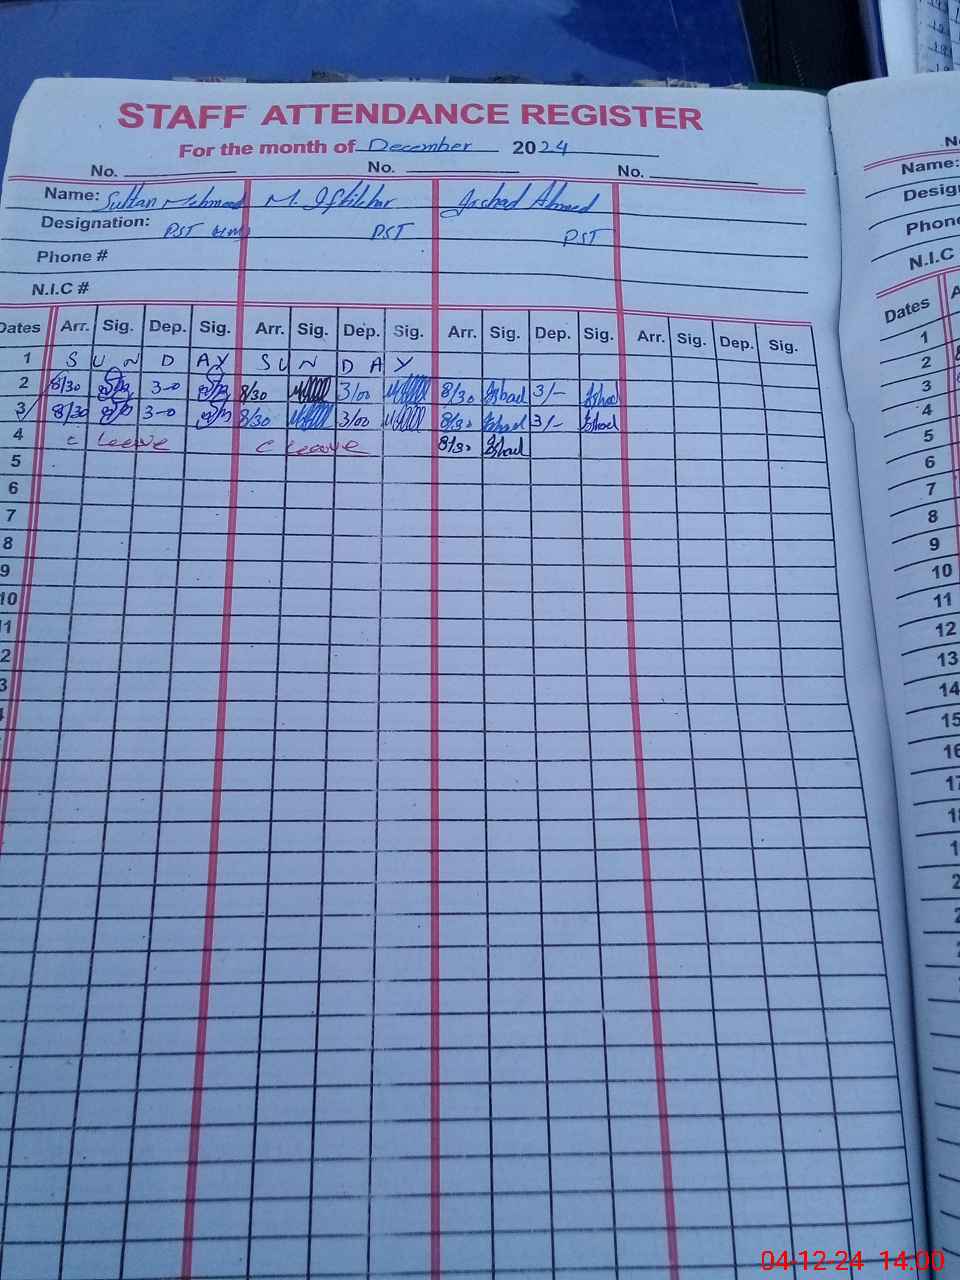 STAFF ATTENDANCE REGISTER
For the month of December 2024
No. No. No.
Name: Sultan Mehmood M. Iftikhar Arshad Ahmed
Designation: PST PST PST
Phone #
N.I.C #
Dates Arr. Sig. Dep. Sig. Arr. Sig. Dep. Sig. Arr. Sig. Dep. Sig. Arr. Sig. Dep. Sig.
1 S U N D A Y S U N D A Y
2 8/30 3-0 8/30 3/00 8/30 Arshad 3/- Arshad
3 8/30 3-0 8/30 3/00 8/30 Arshad 3/- Arshad
4 c leave c leave 8/30 Arshad
5
6
7
8
9
10
11
2
3
Name:
Phone
N.I.C
Dates
1
2
3
4
5
6
7
8
9
10
11
12
13
14
15
16
04-12-24 14:00